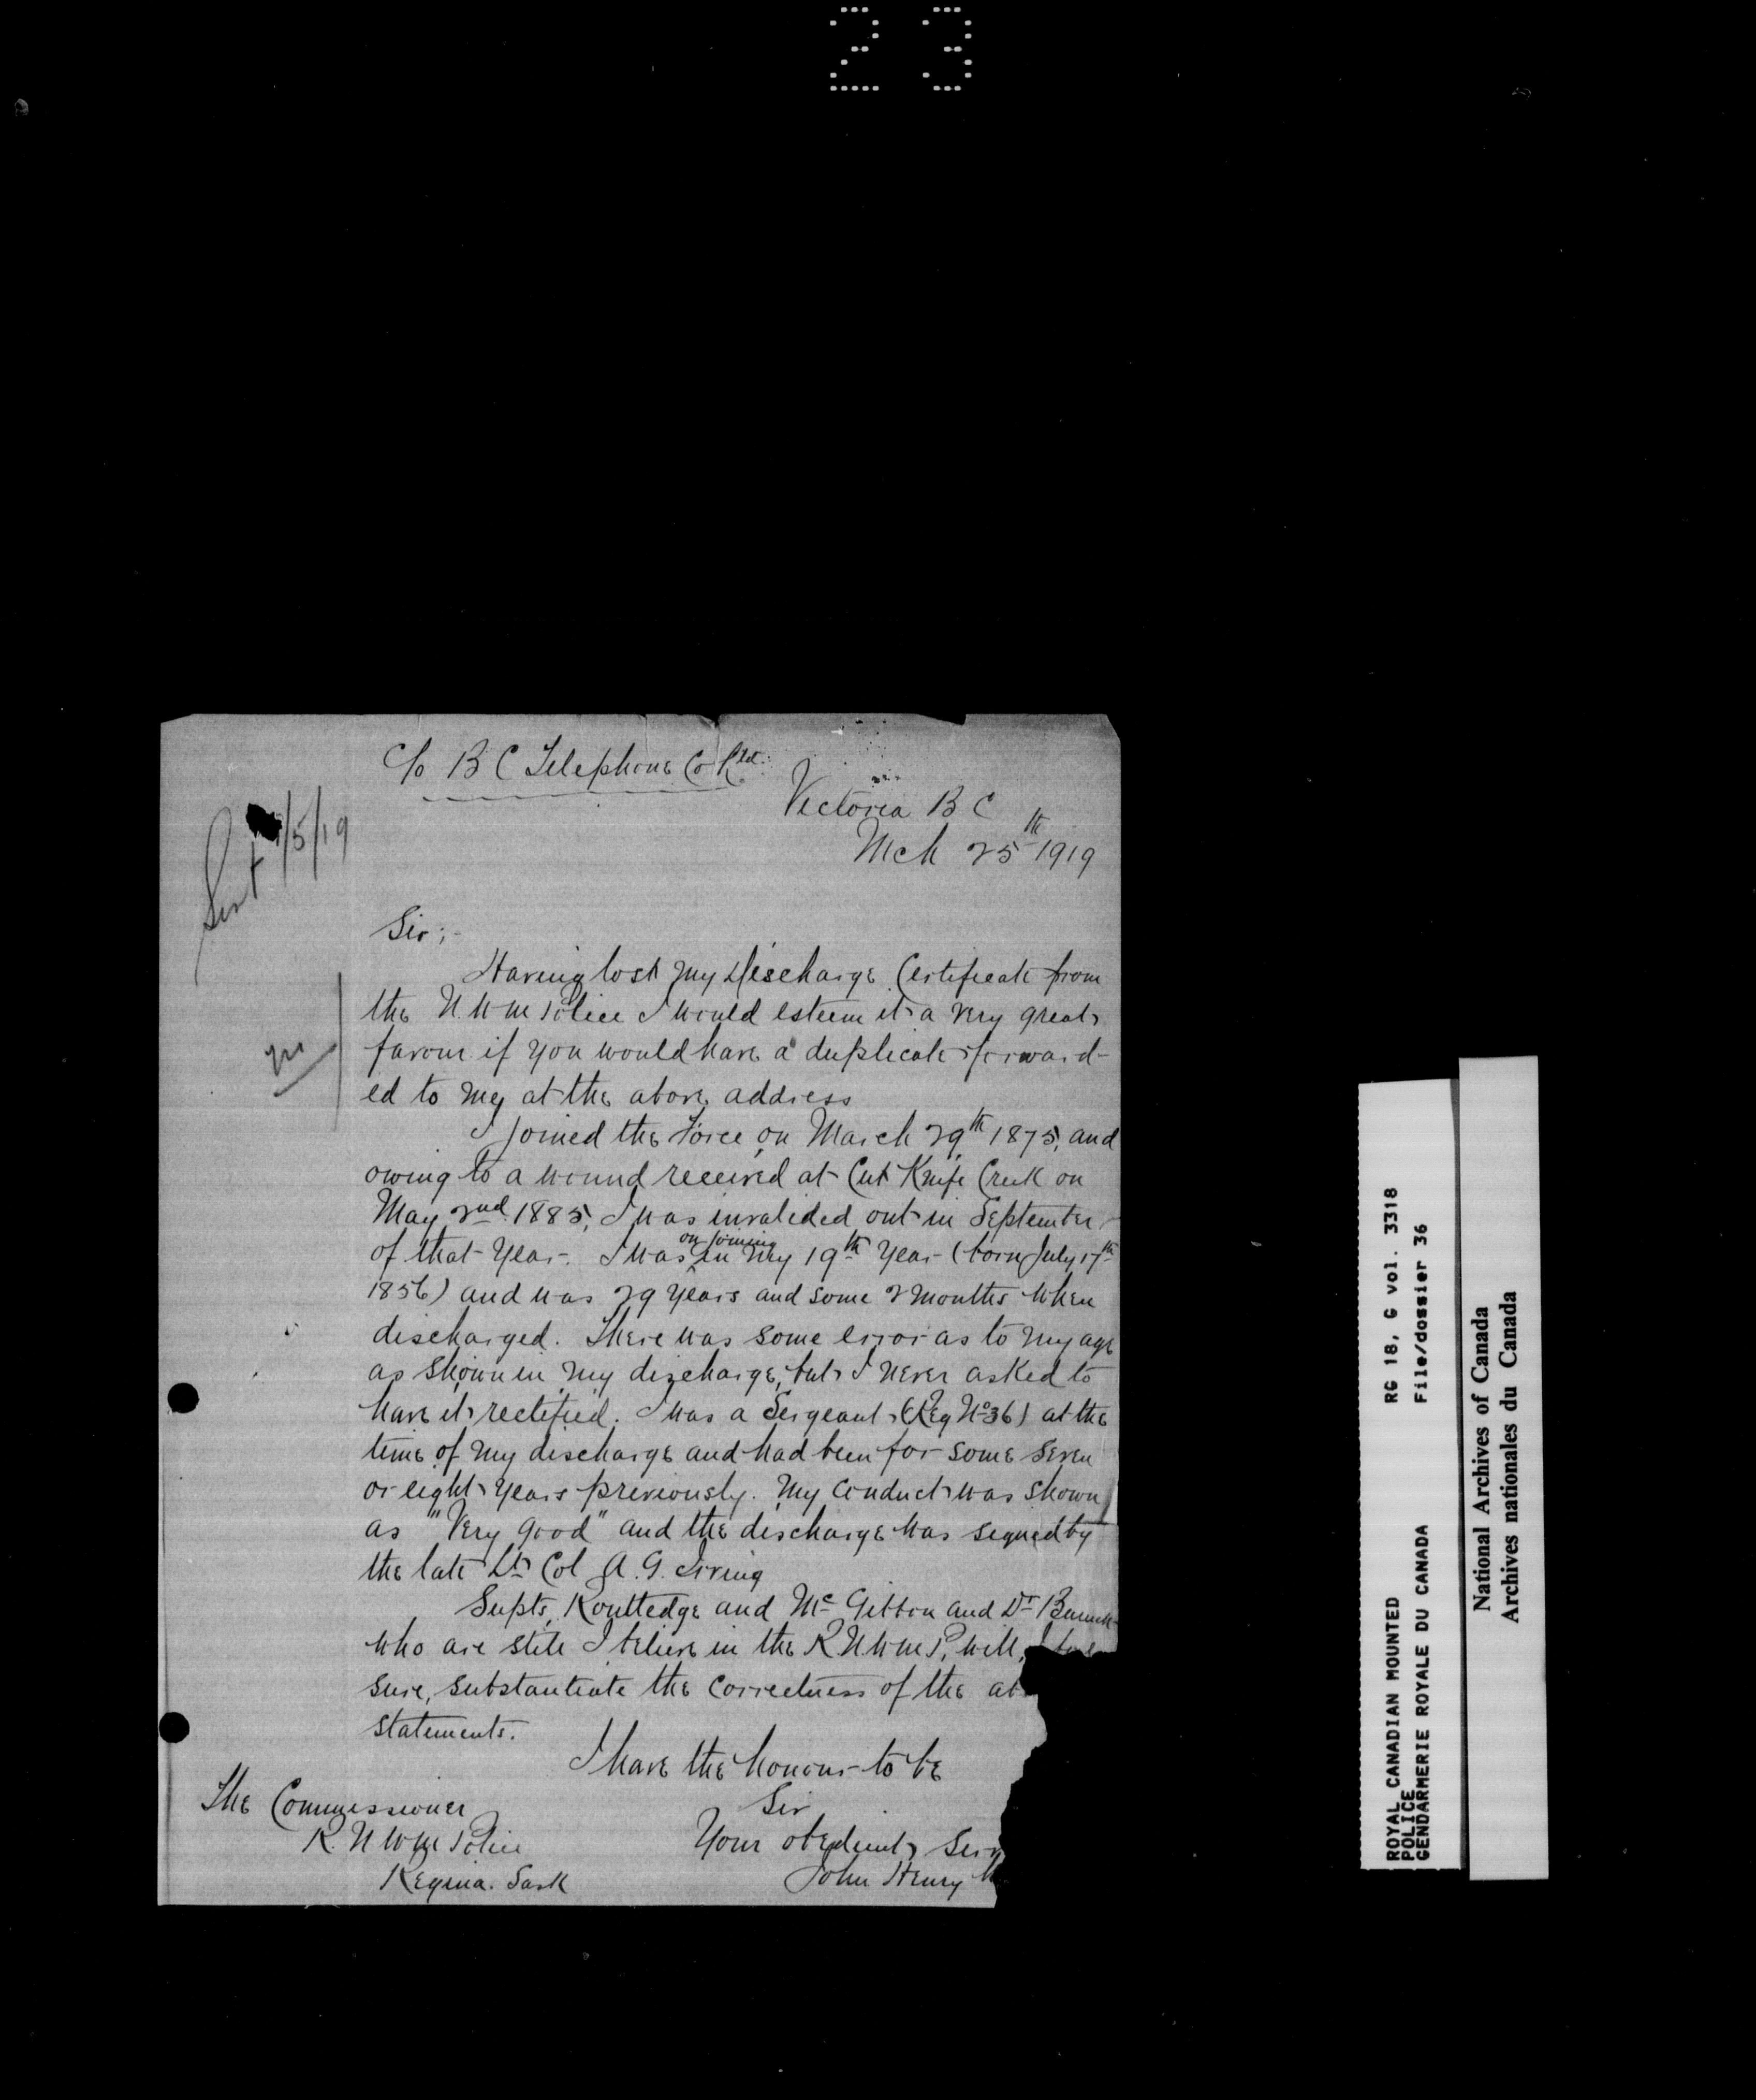 23
C/o B C Telephone Co Ltd.
Victoria B C
Mch 25th 1919
Sent /5/19
Sir;-
Having lost my Discharge Certificate from
the N. W M Police I would esteem it a very great
favour if you would have a duplicate forward-
ed to me at the above address
I joined the Force on March 29th 1875, and
owing to a wound received at Cut Knife Creek on
May 2nd 1885, I was invalided out in September
of that year. I was on joining in my 19th year (born July 17th
1856) and was 29 years and some 2 months when
discharged. There was some error as to my age
as shown in my discharge, but I never asked to
have it rectified. I was a Sergeant (Reg No 36) at the
time of my discharge and had been for some seven
or eight years previously. My conduct was shown
as "Very good" and the discharge was signed by
the late Lt Col A. G. Irving
Supts Routledge and Mc Gibbon and Dr
who are still I believe in the R N W M P, will,
sure, substantiate the correctness of the ab
statements.
I have the honour to be
Sir
Your obedient Serv
John Henry
The Commissioner
R. N W M Police
Regina. Sask
ROYAL CANADIAN MOUNTED
POLICE
GENDARMERIE ROYALE DU CANADA
RG 18, G vol. 3318
File/dossier 36
National Archives of Canada
Archives nationales du Canada